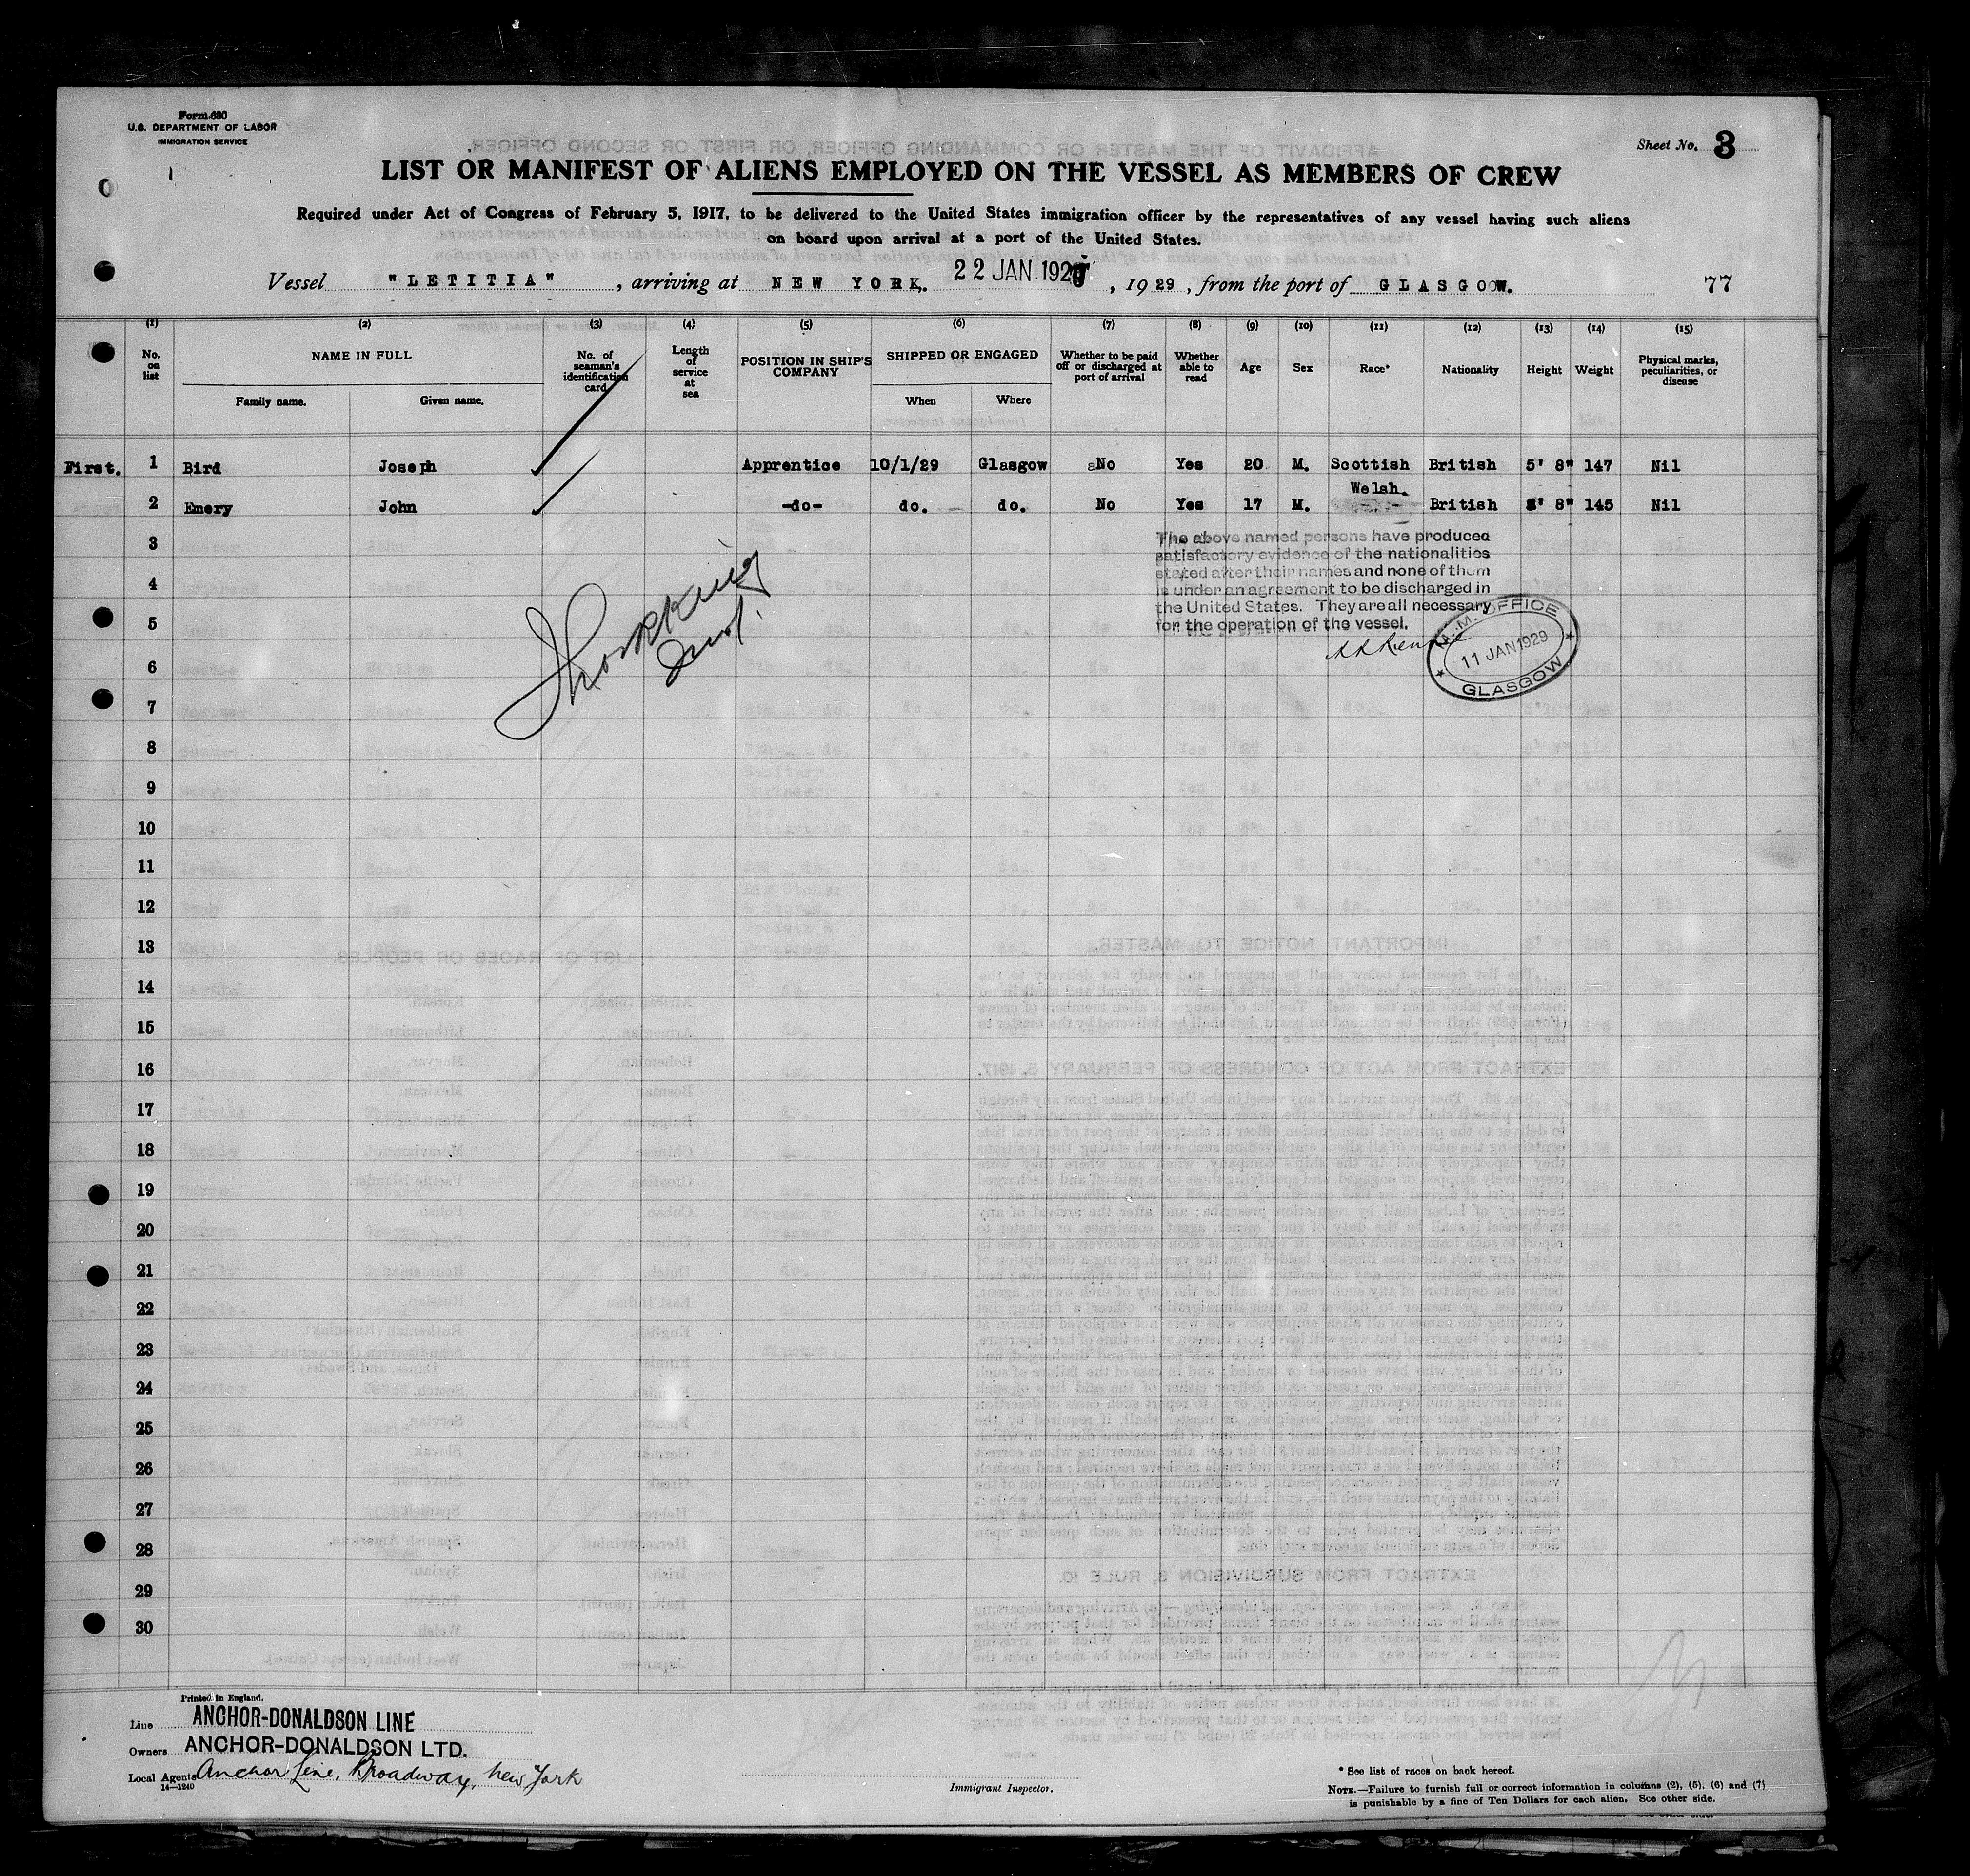 Form 680
U.S. DEPARTMENT OF LABOR
IMMIGRATION SERVICE
Sheet No. 3
LIST OR MANIFEST OF ALIENS EMPLOYED ON THE VESSEL AS MEMBERS OF CREW
Required under Act of Congress of February 5, 1917, to be delivered to the United States immigration officer by the representatives of any vessel having such aliens
on board upon arrival at a port of the United States.
Vessel "LETITIA", arriving at NEW YORK. 22 JAN 1929, 1929, from the port of GLASGOW. 77
(1) (2) (3) (4) (5) (6) (7) (8) (9) (10) (11) (12) (13) (14) (15)
No. on list
NAME IN FULL
Family name. Given name.
No. of seaman's identification card
Length of service at sea
POSITION IN SHIP'S COMPANY
SHIPPED OR ENGAGED
When Where
Whether to be paid off or discharged at port of arrival
Whether able to read
Age
Sex
Race*
Nationality
Height
Weight
Physical marks, peculiarities, or disease
First. 1 Bird Joseph Apprentice 10/1/29 Glasgow No Yes 20 M. Scottish British 5' 8" 147 Nil
Welsh.
2 Emery John -do- do. do. No Yes 17 M. British 5' 8" 145 Nil
The above named persons have produced
satisfactory evidence of the nationalities
stated after their names and none of them
is under an agreement to be discharged in
the United States. They are all necessary
for the operation of the vessel.
OFFICE
11 JAN 1929
GLASGOW
3
4
5
6
7
8
9
10
11
12
13
14
15
16
17
18
19
20
21
22
23
24
25
26
27
28
29
30
Printed in England.
Line ANCHOR-DONALDSON LINE
Owners ANCHOR-DONALDSON LTD.
Local Agents Anchor Line, Broadway, New York
14—1240
Immigrant Inspector.
* See list of races on back hereof.
NOTE.—Failure to furnish full or correct information in columns (2), (5), (6) and (7)
is punishable by a fine of Ten Dollars for each alien. See other side.